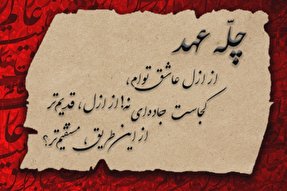 چلّه عهد
از ازل عاشق توام،
نه! از ازل، قدیم‌تر
کجاست جاده‌ای
از این طریق، مستقیم‌تر؟